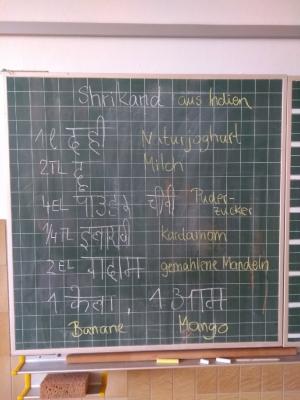 Shrikand aus Indien
1l दही Naturjoghurt
2TL दू Milch
4EL पाउडर चीनी Puder-
zucker
1/4 TL इलायची Kardamom
2 EL बादाम gemahlene Mandeln
1 केला, 1 आम
Banane Mango